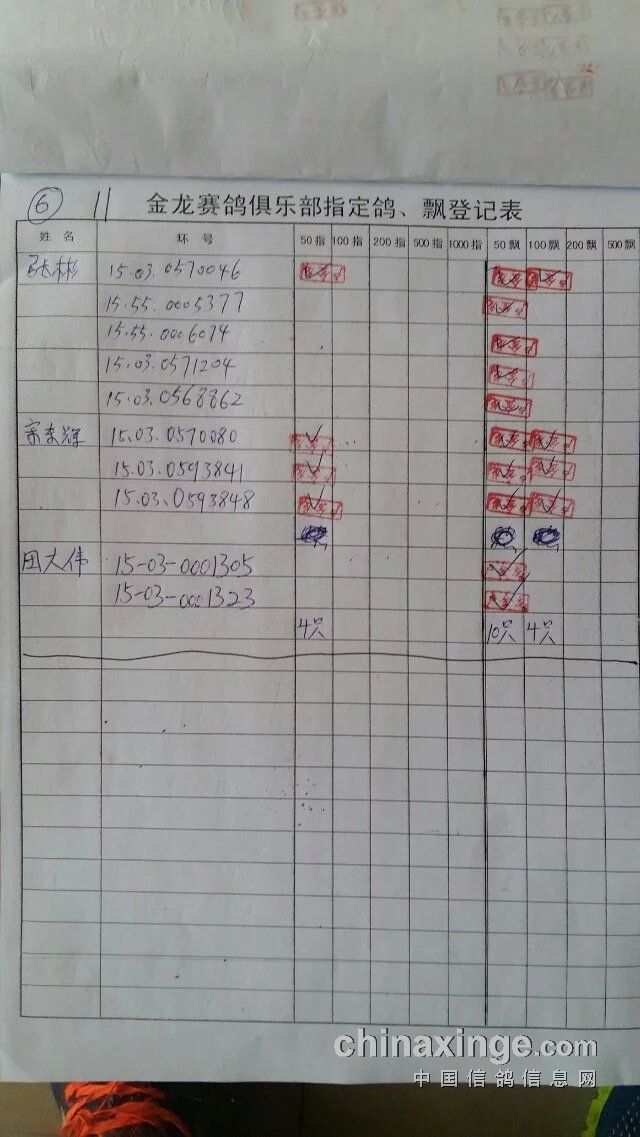 ⑥ 11 金龙赛鸽俱乐部指定鸽、飘登记表
姓 名 环 号 50 指 100 指 200 指 500 指 1000 指 50 飘 100 飘 200 飘 500 飘
张彬 15.03.0570046
15.55.0005377
15.55.0006074
15.03.0571204
15.03.0568862
宋东辉 15.03.0570080
15.03.0593841
15.03.0593848
田大伟 15-03-0001305
15-03-0001323
4只 10只 4只
chinaxinge.com
中国信鸽信息网